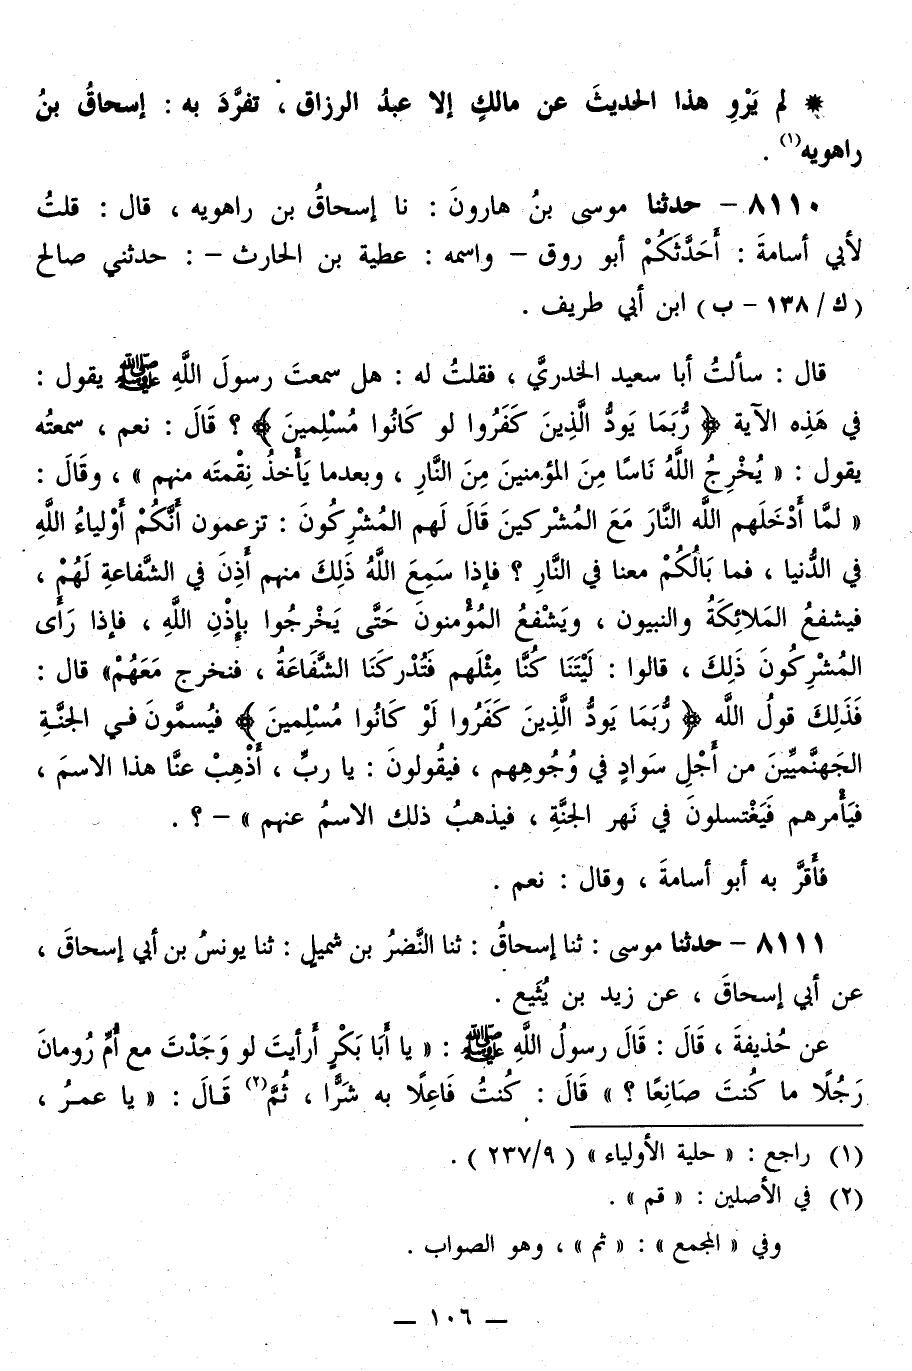 * لم يَرْوِ هذا الحديثَ عن مالكٍ إلا عبدُ الرزاق ، تفرَّدَ به : إسحاقُ بنُ
راهويه(١) .
٨١١٠ – حدثنا موسى بنُ هارونَ : نا إسحاقُ بن راهويه ، قال : قلتُ
لأبي أسامةَ : أَحَدَّثَكُمْ أبو روق – واسمه : عطية بن الحارث – : حدثني صالح
( ك / ١٣٨ – ب ) ابن أبي طريف .
قال : سألتُ أبا سعيد الخدريَّ ، فقلتُ له : هل سمعتَ رسولَ اللَّهِ ﷺ يقول :
في هَذِه الآية ﴿ رُّبَمَا يَودُّ الَّذِينَ كَفَرُوا لو كَانُوا مُسْلِمينَ ﴾ ؟ قَالَ : نعم ، سمعتُه
يقول : « يُخْرِجُ اللَّهُ نَاسًا مِنَ المؤمنينَ مِنَ النَّارِ ، وبعدما يَأْخذُ نِقْمتَه منهم » ، وقَالَ :
« لمَّا أَدْخَلَهم الله النَّارَ مَعَ المُشْركينَ قَالَ لَهم المُشْرِكُونَ : تزعمون أَنَّكُمْ أَوْلياءُ اللَّهِ
في الدُّنيا ، فما بَالُكُمْ معنا في النَّارِ ؟ فإذا سَمِعَ اللَّهُ ذَلِكَ منهم أَذِنَ في الشَّفاعةِ لَهُمْ ،
فيشفعُ المَلائِكَةُ والنبيون ، ويَشْفعُ المُؤْمنونَ حَتَّى يَخْرجُوا بإِذْنِ اللَّهِ ، فإذا رَأَى
المُشْرِكُونَ ذَلِكَ ، قالوا : لَيْتَنَا كُنَّا مِثْلَهم فَتُدْركَنَا الشَّفَاعَةُ ، فنخرج مَعَهُمْ» قال :
فَذَلِكَ قولُ الله ﴿ رُّبَمَا يَودُّ الَّذِينَ كَفَرُوا لَوْ كَانُوا مُسْلِمينَ ﴾ فيُسمَّونَ في الجنَّةِ
الجَهنَّميِّينَ من أَجْلِ سَوادٍ في وُجُوهِهم ، فيقُولونَ : يا ربِّ ، أَذْهِبْ عنَّا هذا الاسمَ ،
فيَأْمرهم فَيَغْتسلونَ في نَهر الجنَّةِ ، فيذهبُ ذلك الاسمُ عنهم » – ؟ .
فأَقرَّ به أبو أسامةَ ، وقال : نعم .
٨١١١ – حدثنا موسى : ثنا إسحاقُ : ثنا النَّضرُ بن شميلٍ : ثنا يونسُ بن أبي إسحاقَ ،
عن أبي إسحاقَ ، عن زيد بن يُثَيع .
عن حُذيفةَ ، قَالَ : قَالَ رسولُ اللَّهِ ﷺ : « يا أَبَا بَكْرٍ أَرأيتَ لو وَجَدْتَ مع أُمِّ رُومانَ
رَجُلًا ما كُنتَ صَانِعًا ؟ » قَالَ : كُنتُ فَاعِلًا به شَرًّا ، ثُمَّ(٢) قَالَ : « يا عمرُ ،
(١) راجع : « حلية الأولياء » ( ٢٣٧/٩ ) .
(٢) في الأصلين : « قم » .
وفي « المجمع » : « ثم » ، وهو الصواب .
— ١٠٦ —